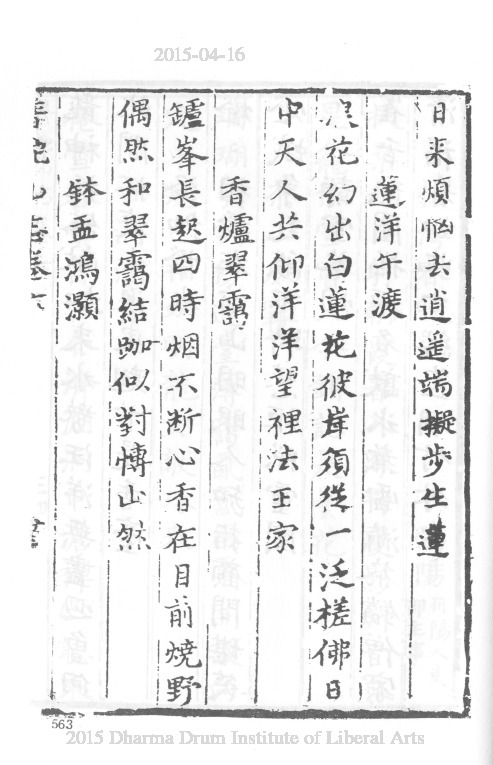 2015-04-16
日来煩惱去逍遥端擬步生蓮
蓮洋午渡
浪花幻出白蓮花彼岸須從一泛槎佛日
中天人共仰洋洋望裡法王家
香爐翠靄
鑪峯長起四時烟不断心香在目前燒野
偶然和翠靄結跏似對慱山然
鉢盂鴻灝
563
2015 Dharma Drum Institute of Liberal Arts